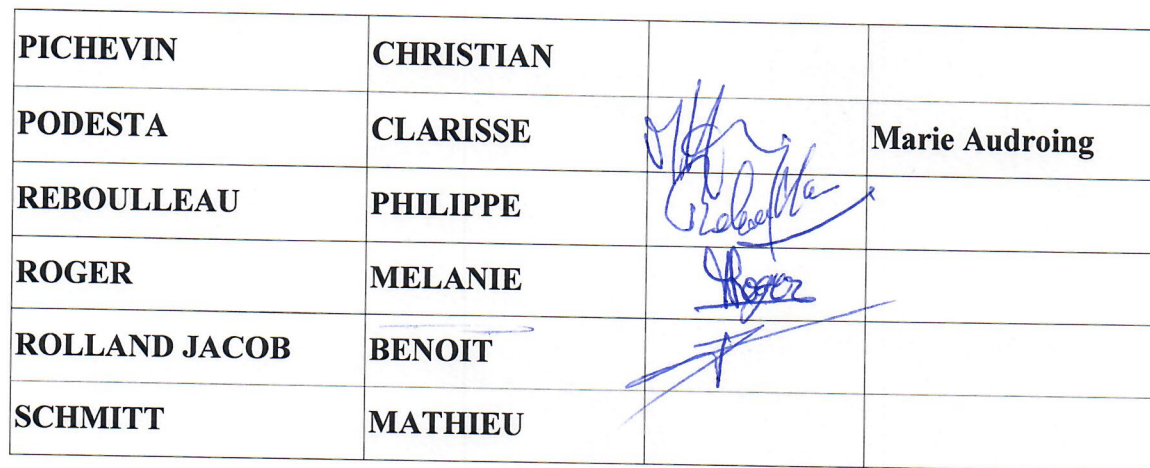 PICHEVIN CHRISTIAN
PODESTA CLARISSE Marie Audroing
REBOULLEAU PHILIPPE
ROGER MELANIE Roger
ROLLAND JACOB BENOIT
SCHMITT MATHIEU